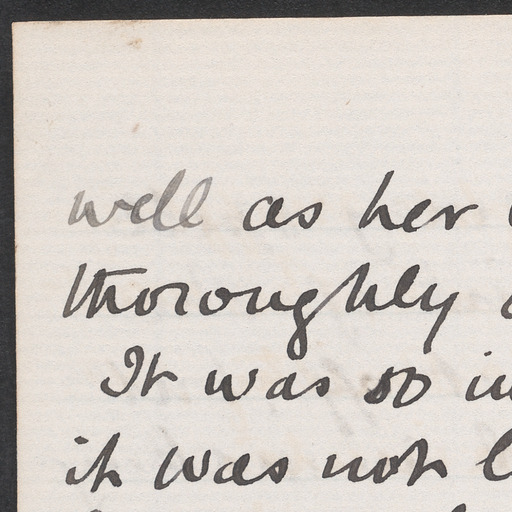 well as her
thoroughly
It was so
it was not